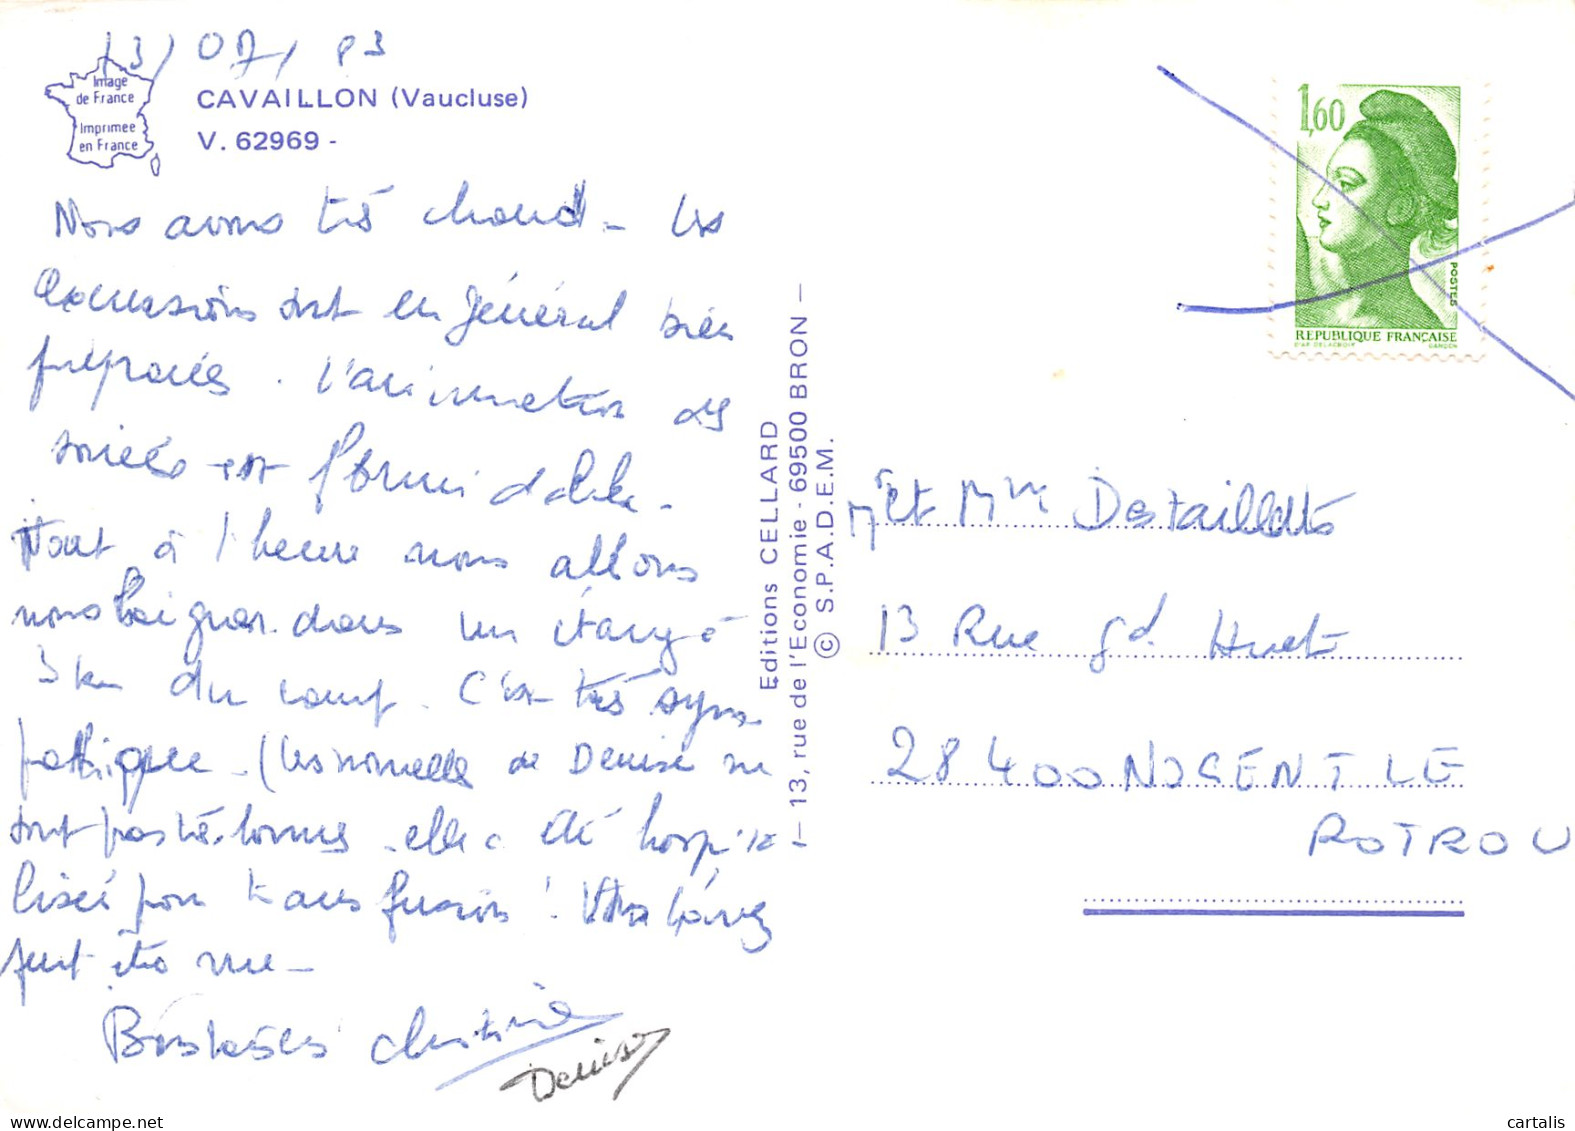 13/07/83
Image
de France
Imprimée
en France
CAVAILLON (Vaucluse)
V. 62969 -
Nous avons très chaud - Les
excursions sont en général bien
préparées. L'animation des
soirées est formidable -
Tout à l'heure nous allons
nous baigner dans un étang à
3 km du camp. C'est très sym-
pathique - (Les nouvelles de Denise ne
sont pas très bonnes - elle a été hospita-
lisée pour transfusions !
Bons baisers Christine
Denise
Editions CELLARD
— 13, rue de l'Economie - 69500 BRON —
© S.P.A.D.E.M.
1,60
POSTES
REPUBLIQUE FRANÇAISE
D'AP. DELACROIX GANDON
Mr et Mme Destaillats
13 Rue gd. Huet
28400 NOGENT LE
ROTROU
cartalis